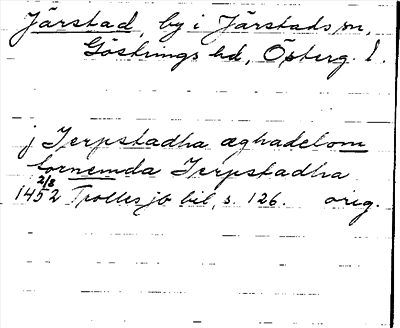 Järstad, by i Järstads sn,
Göstrings hd, Österg. l.
j Jerpstadha æghadelom
fornemda Jerpstadha
2/8
1452 Trolles jb bil, s. 126. orig.